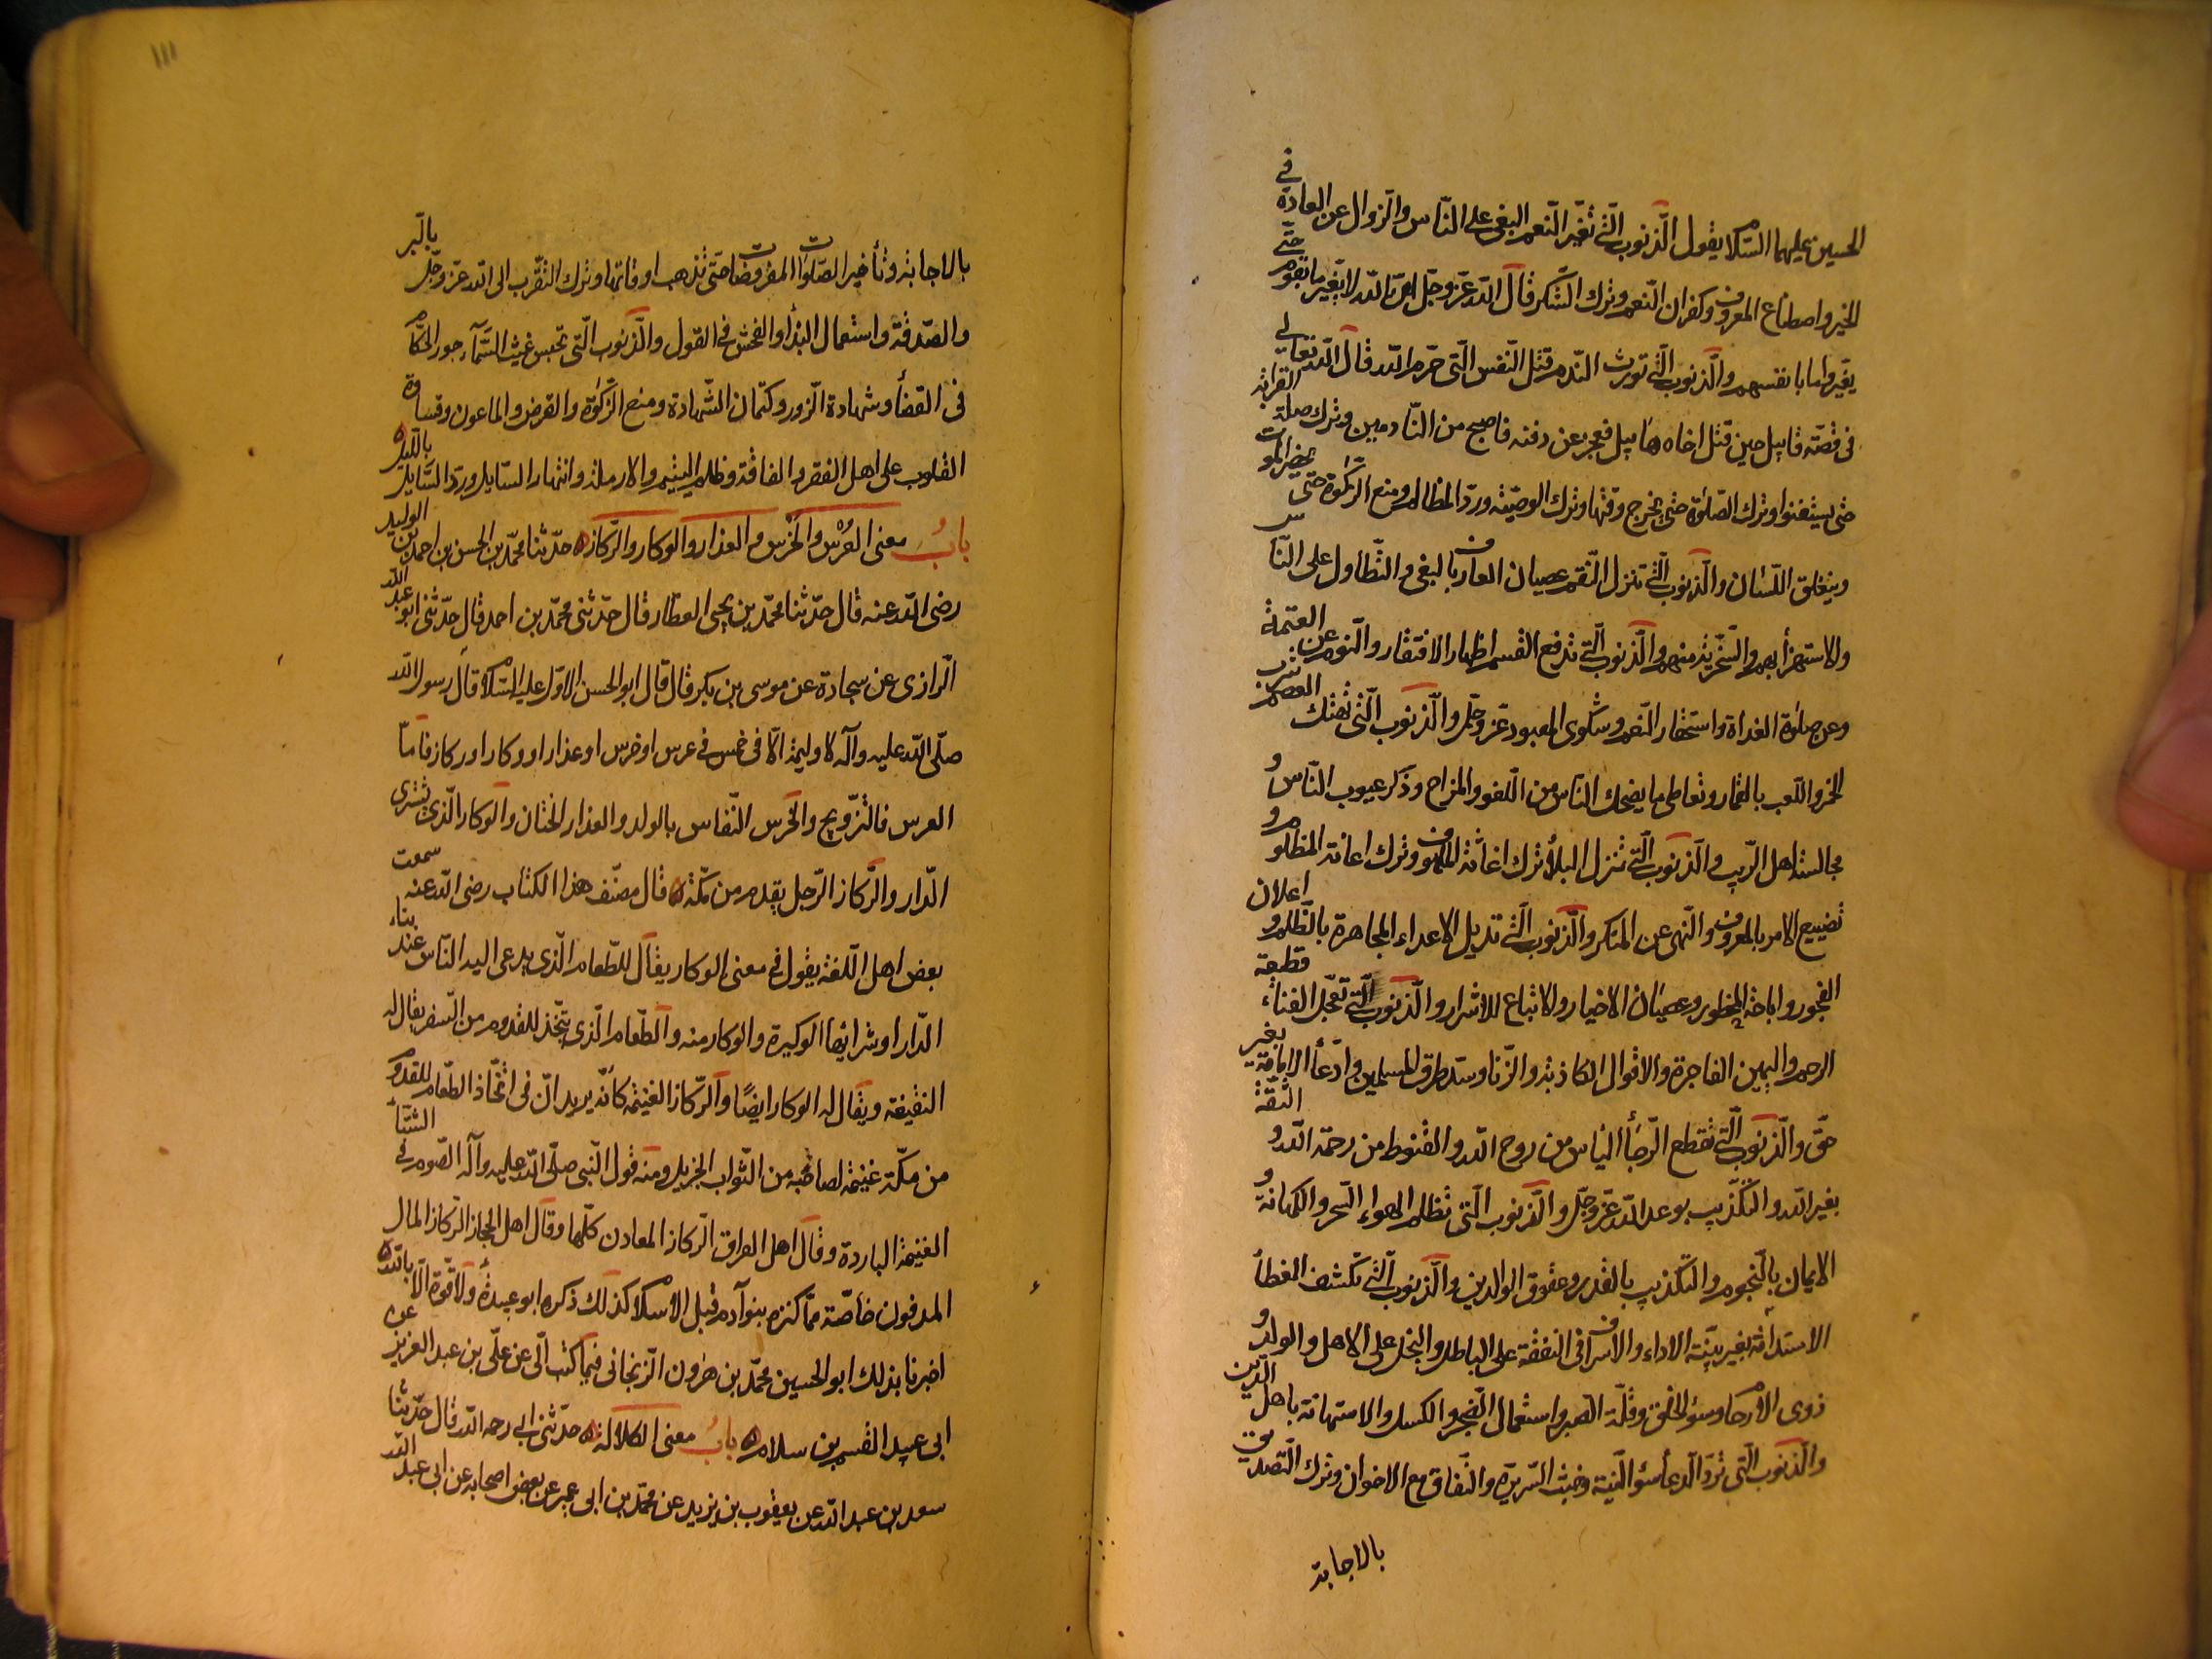 الحسين عليهما السّلام يقول الّذنوب الّتى تغيّر النّعم البغى على النّاس والزّوال عن العادة فى
الخير واصطناع المعروف وكفران النّعم وترك الشّكر قال الله عزّ وجلّ انّ الله لا يغيّر ما بقوم حتّى
يغيّروا ما بانفسهم والّذنوب الّتى تورث النّدم قتل النّفس الّتى حرّم الله قال الله تعالى
فى قصّة قابيل حين قتل اخاه هابيل فعجز عن دفنه فاصبح من النّادمين وترك صلة القرابة
حتّى يستغنوا وترك الصّلوة حتّى يخرج وقتها وترك الوصيّة وردّ المظالم ومنع الزّكوة حتّى يحضر الموت
وينغلق اللّسان والّذنوب الّتى تنزل النّقم عصيان العارف بالبغى والتّطاول على النّاس
والاستهزأ بهم والسّخريّة منهم والّذنوب الّتى تدفع القسم اظهار الافتقار والنّوم عن العتمة
وعن صلوة الغداة واستحقار النّعم وشكوى المعبود عزّ وجلّ والّذنوب الّتى تهتك العصم شرب
الخمر واللّعب بالقمار وتعاطى ما يضحك النّاس من اللّغو والمزاح وذكر عيوب النّاس و
مجالسة اهل الرّيب والّذنوب الّتى تنزل البلأ ترك اغاثة الملهوف وترك اعانة المظلوم و
تضييع الامر بالمعروف والنّهى عن المنكر والّذنوب الّتى تديل الاعداء المجاهرة بالظّلم و اعلان
الفجور واباحة المحظور وعصيان الاخيار والاتباع للاشرار والّذنوب الّتى تعجّل الفناء قطيعة
الرحم واليمين الفاجرة والاقوال الكاذبة والزّنا وسدّ طرق المسلمين وادّعأ الامامة بغير
حقّ والّذنوب الّتى تقطع الرّجأ اليأس من روح الله والقنوط من رحمة الله و الثّقة
بغير الله والتّكذيب بوعد الله عزّ وجلّ والّذنوب الّتى تظلم الهواء السّحر والكهانة و
الايمان بالنّجوم والتّكذيب بالقدر وعقوق الوالدين والّذنوب الّتى تكشف الغطأ
الاستدانة بغير نيّة الاداء والاسراف فى النفقة على الباطل والبخل على الاهل والولد و
ذوى الارحام وسوء الخلق وقلّة الصبر واستعمال الضّجر والكسل والاستهانة باهل الدّين
والّذنوب الّتى تردّ الدّعأ سوء النّية وخبث السّريرة والنّفاق مع الاخوان وترك التّصديق
بالاجابة
١١١
بالاجابة وتأخير الصّلوات المفروضات حتّى تذهب اوقاتها وترك التّقرّب الى الله عزّ وجلّ بالبّر
والصّدقة واستعمال البذأ والفحش فى القول والّذنوب الّتى تحبس غيث السّمآء جور الحكّام
فى القضأ وشهادة الزّور وكتمان الشّهادة ومنع الزّكوة والقرض والماعون وقساوة
القلوب على اهل الفقر والفاقة وظلم اليتيم والارملة وانتهار السّايل وردّ السّايل باللّيل
باب معنى العرس والخرس والعذار والوكار والرّكاز حدّثنا محمّد بن الحسن بن احمد بن الوليد
رضى الله عنه قال حدّثنا محمّد بن يحيى العطّار قال حدّثنى محمّد بن احمد قال حدّثنى ابو عبد الله
الرّازى عن سجادة عن موسى بن بكر قال قال ابو الحسن الاوّل عليه السّلام قال رسول الله
صلّى الله عليه وآله لا وليمة الّا فى خمس فى عرس او خرس او عذار او وكار او ركاز فامّا
العرس فالتزّويج والخرس النّفاس بالولد والعذار الختان والوكار الّذى يشترى
الّدار والرّكاز الرّجل يقدم من مكّة قال مصنّف هذا الكتاب رضى الله عنه سمعت
بعض اهل اللّغة يقول فى معنى الوكار يقال للطّعام الّذى يدعى اليه النّاس عند بناء
الدّار او شرائها الوكيرة والوكار منه والطّعام الّذى يتّخذ للقدوم من السّفر يقال له
النقيعة ويقال له الوكار ايضًا والرّكاز الغنيمة كأنّه يريد انّ فى اتّخاذ الطّعام للقدوم
من مكّة غنيمة لصاحبه من الثّواب الجزيل ومنه قول النّبى صلّى الله عليه وآله الصّوم فى الشتآ
الغنيمة الباردة وقال اهل العراق الرّكاز المعادن كلّها وقال اهل الحجاز الرّكاز المال
المدفون خاصّة ممّا كنزه بنو آدم قبل الاسلام كذلك ذكره ابو عبيدة ولا قوّة الّا بالله
اخبرنا بذلك ابو الحسين محمّد بن هٰرون الزّنجانى فيما كتب الىّ عن علّى بن عبد العزيز عن
ابى عبيد القسم بن سلام باب معنى الكلالة حدّثنى ابى رحمه الله قال حدّثنا
سعد بن عبد الله عن يعقوب بن يزيد عن محمّد بن ابى عمير عن بعض اصحابه عن ابى عبد الله